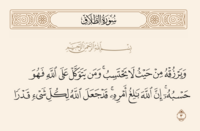 سُورَةُ الطَّلَاقِ
بِسْمِ اللَّهِ الرَّحْمَٰنِ الرَّحِيمِ
وَيَرْزُقْهُ مِنْ حَيْثُ لَا يَحْتَسِبُ وَمَن يَتَوَكَّلْ عَلَى اللَّهِ فَهُوَ
حَسْبُهُ إِنَّ اللَّهَ بَالِغُ أَمْرِهِ قَدْ جَعَلَ اللَّهُ لِكُلِّ شَيْءٍ قَدْرًا